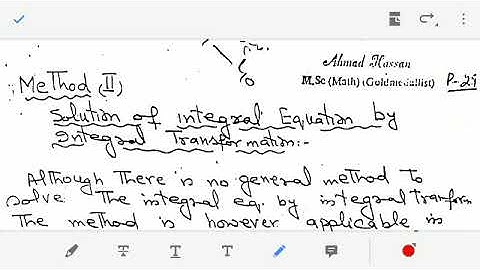 Ahmad Hassan
M.Sc (Math) (Goldmedallist)
Method (II)
Solution of integral Equation by
Integral Transformation:-
Although There is no general method To
solve The integral eq. by integral Transform
The method is however applicable in
T T T